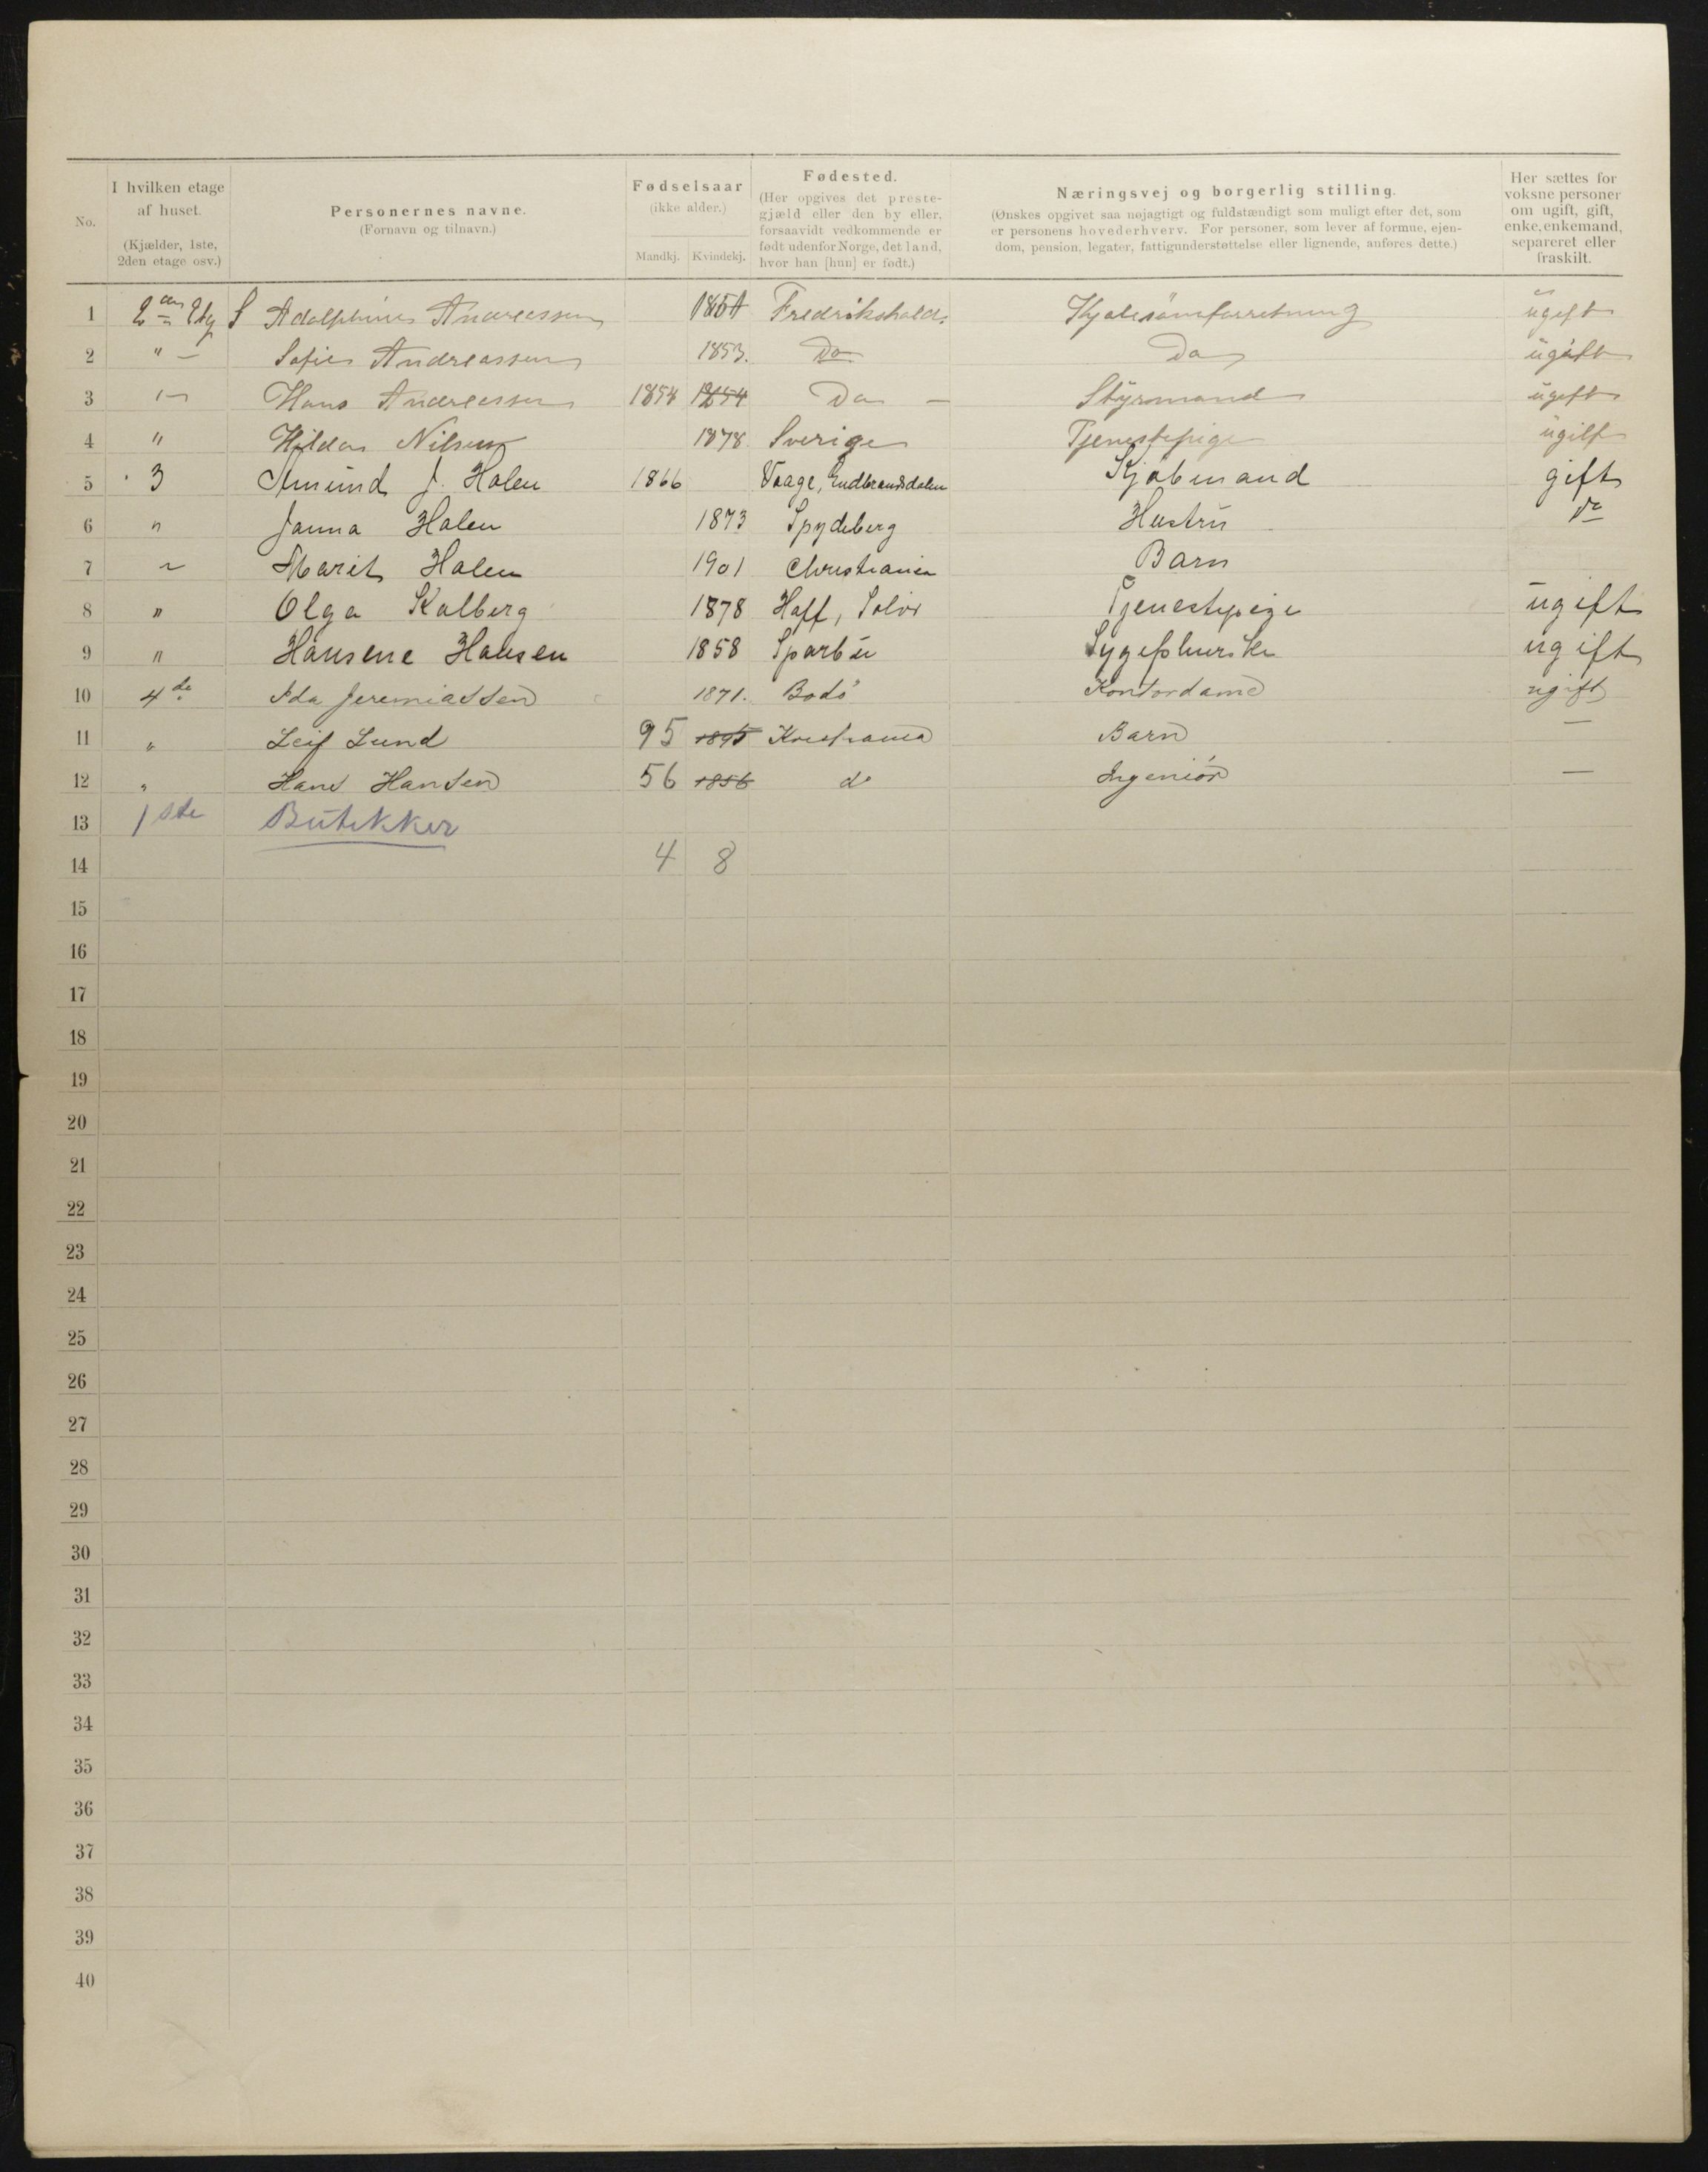 No.
I hvilken etage af huset. (Kjælder, 1ste, 2den etage osv.)
Personernes navne. (Fornavn og tilnavn.)
Fødselsaar (ikke alder.)
Mandkj. Kvindekj.
Fødested. (Her opgives det prestegjæld eller den by eller, forsaavidt vedkommende er født udenfor Norge, det land, hvor han [hun] er født.)
Næringsvej og borgerlig stilling. (Ønskes opgivet saa nøjagtigt og fuldstændigt som muligt efter det, som er personens hovederhverv. For personer, som lever af formue, ejendom, pension, legater, fattigunderstøttelse eller lignende, anføres dette.)
Her sættes for voksne personer om ugift, gift, enke, enkemand, separeret eller fraskilt.
1 2den Etg Andreassen Fredrikshald. ugift
2 " — Sofie Andreassen 1853. Do Do ugift
3 Hans Andreassen 1854 1854 Do — Styrmand ugift
4 " Hilda Nilsen 1878 Sverige Tjenestepige ugift
5 3 Amund J. Holen 1866 Vaage, Gudbrandsdalen Kjøbmand gift
6 " Janna Holen 1873 Spydeberg Hustru do
7 " Marit Holen 1901 Christiania Barn
8 " Olga Kalberg 1878 Hoff, Solør Tjenestepige ugift
9 " Hansene Hansen 1858 Sparbu Sygepleierske ugift
10 4de Ida Jeremiassen 1871. Bodø Kontordame ugift
11 " Leif Lund 95 1895 Kristiania Barn —
12 " Hans Hansen 56 1856 do Ingeniør —
13 1ste Butikker
14 4 8
15
16
17
18
19
20
21
22
23
24
25
26
27
28
29
30
31
32
33
34
35
36
37
38
39
40